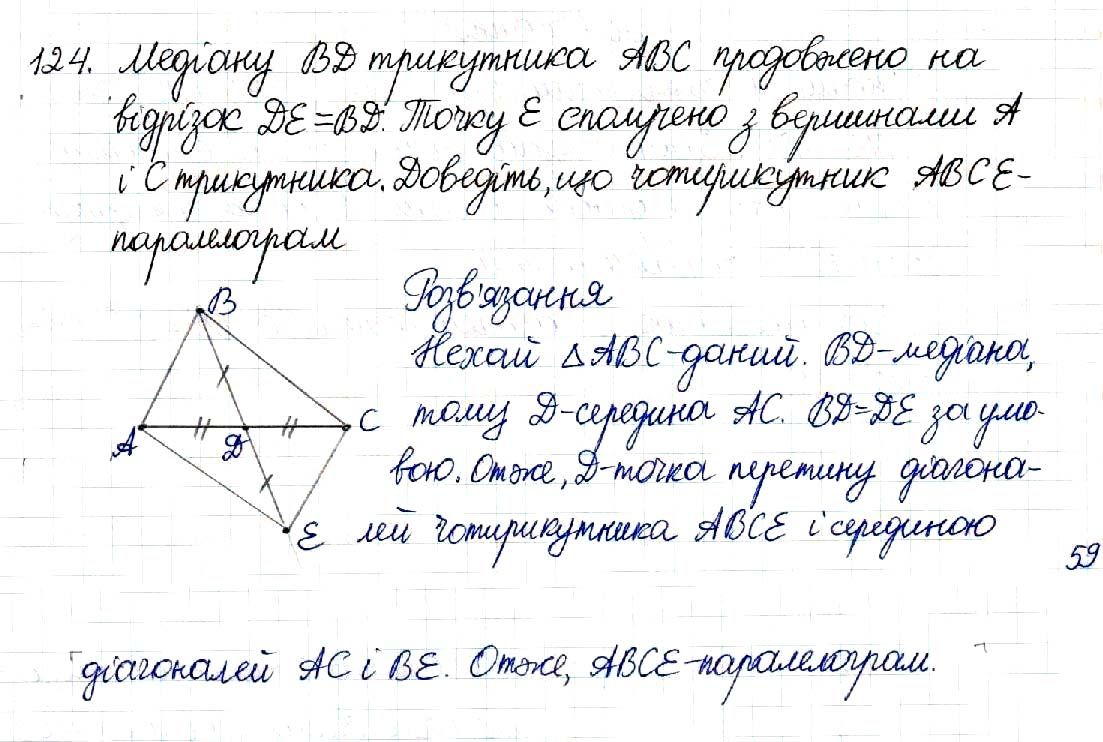 124. Медіану BD трикутника ABC продовжено на
відрізок DE=BD. Точку E сполучено з вершинами A
і C трикутника. Доведіть, що чотирикутник ABCE-
паралелограм
Розв'язання
Нехай △ABC-даний. BD-медіана,
тому D-середина AC. BD=DE за умо-
вою. Отже, D-точка перетину діагона-
лей чотирикутника ABCE і серединою
59
діагоналей AC і BE. Отже, ABCE-паралелограм.
B
A
D
C
E